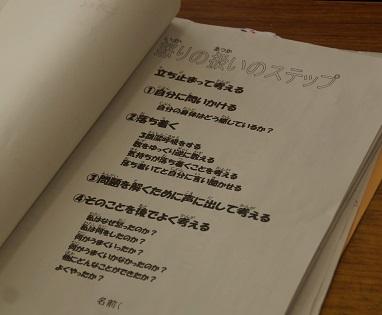 怒りの扱いのステップ
立ち止まって考える
①自分に問いかける
自分の身体はどう感じているか?
②落ち着く
3回深呼吸をする
数をゆっくり逆に数える
気持ちが落ち着くことを考える
落ち着いてと自分に言い聞かせる
③問題を解くために声に出して考える
④そのことを後でよく考える
私はなぜ怒ったのか?
私は何をしたのか?
何がうまくいったか?
何がうまくいかなかったのか?
他にどんなことができたか?
よくやったか?
名前(